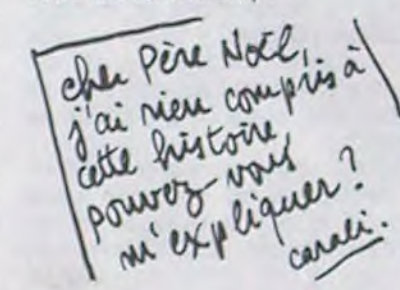 cher Père Noël,
j'ai rien compris à
cette histoire,
pouvez-vous
m'expliquer?
carali.